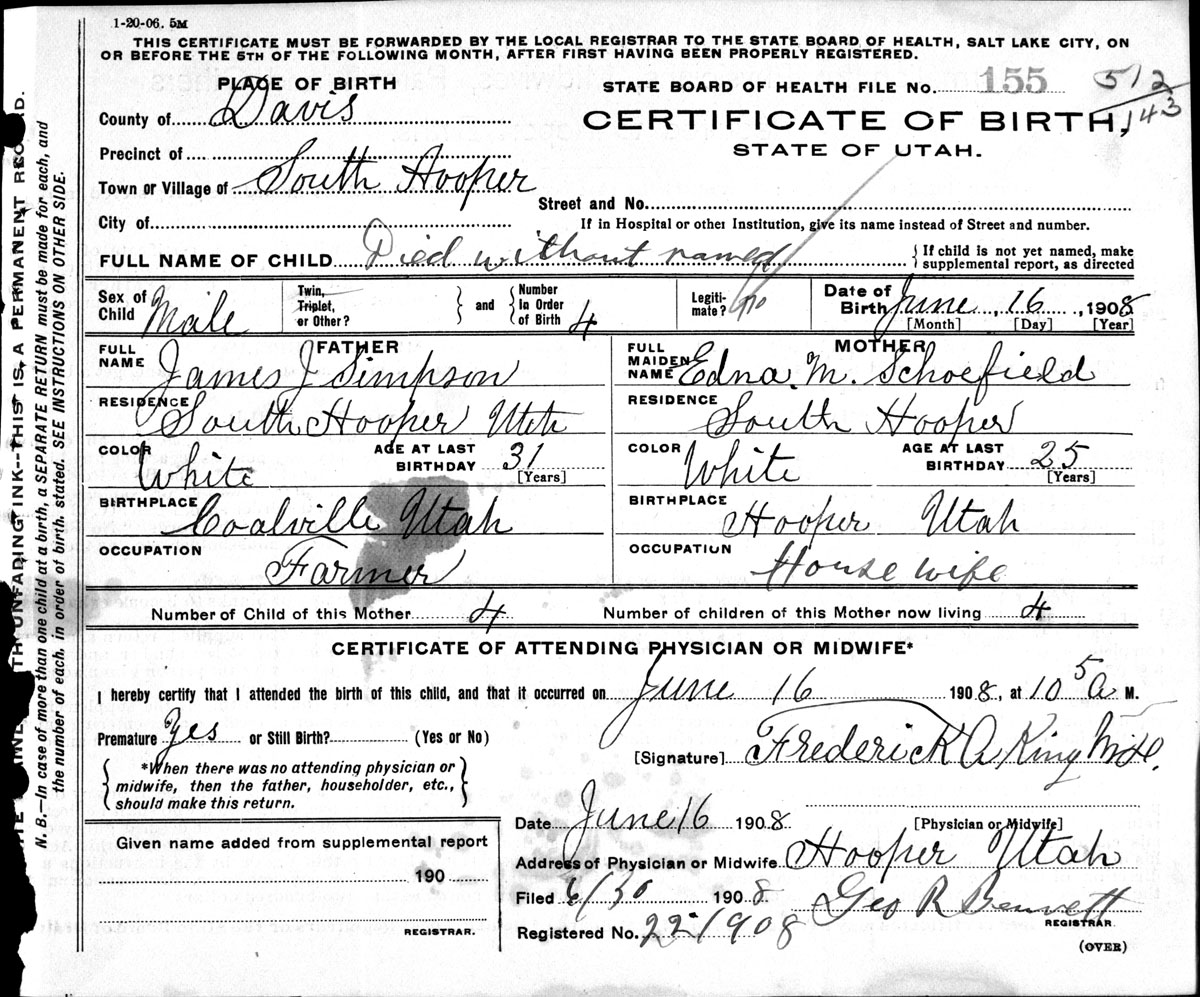 1-20-06. 5M
THIS CERTIFICATE MUST BE FORWARDED BY THE LOCAL REGISTRAR TO THE STATE BOARD OF HEALTH, SALT LAKE CITY, ON
OR BEFORE THE 5TH OF THE FOLLOWING MONTH, AFTER FIRST HAVING BEEN PROPERLY REGISTERED.
PLACE OF BIRTH
STATE BOARD OF HEALTH FILE No. 155
512
143
County of Davis
CERTIFICATE OF BIRTH,
STATE OF UTAH.
Precinct of
Town or Village of South Hooper
Street and No.
City of
If in Hospital or other Institution, give its name instead of Street and number.
FULL NAME OF CHILD Died without named
{If child is not yet named, make
supplemental report, as directed
Sex of Child Male
Twin, Triplet, or Other?
and
Number in Order of Birth 4
Legiti-mate?
Date of Birth June 16, 1908
[Month] [Day] [Year]
FATHER
FULL NAME James J Simpson
RESIDENCE South Hooper Utah
COLOR White
AGE AT LAST BIRTHDAY 31 [Years]
BIRTHPLACE Coalville Utah
OCCUPATION Farmer
MOTHER
FULL MAIDEN NAME Edna. M. Schoefield
RESIDENCE South Hooper
COLOR White
AGE AT LAST BIRTHDAY 25 [Years]
BIRTHPLACE Hooper Utah
OCCUPATION House wife
Number of Child of this Mother 4 Number of children of this Mother now living 4
CERTIFICATE OF ATTENDING PHYSICIAN OR MIDWIFE*
I hereby certify that I attended the birth of this child, and that it occurred on June 16 1908, at 10 5 a M.
Premature Yes or Still Birth? (Yes or No)
[Signature] Frederick A King
{*When there was no attending physician or
midwife, then the father, householder, etc.,
should make this return.}
Date June 16 1908
[Physician or Midwife]
Address of Physician or Midwife Hooper Utah
Given name added from supplemental report
190
REGISTRAR.
Filed 6/30 1908 Geo R Bennett
REGISTRAR
Registered No. 22-1908
(OVER)
N. B.—In case of more than one child at a birth, a SEPARATE RETURN must be made for each, and
the number of each, in order of birth, stated. SEE INSTRUCTIONS ON OTHER SIDE.
UNFADING INK--THIS IS A PERMANENT